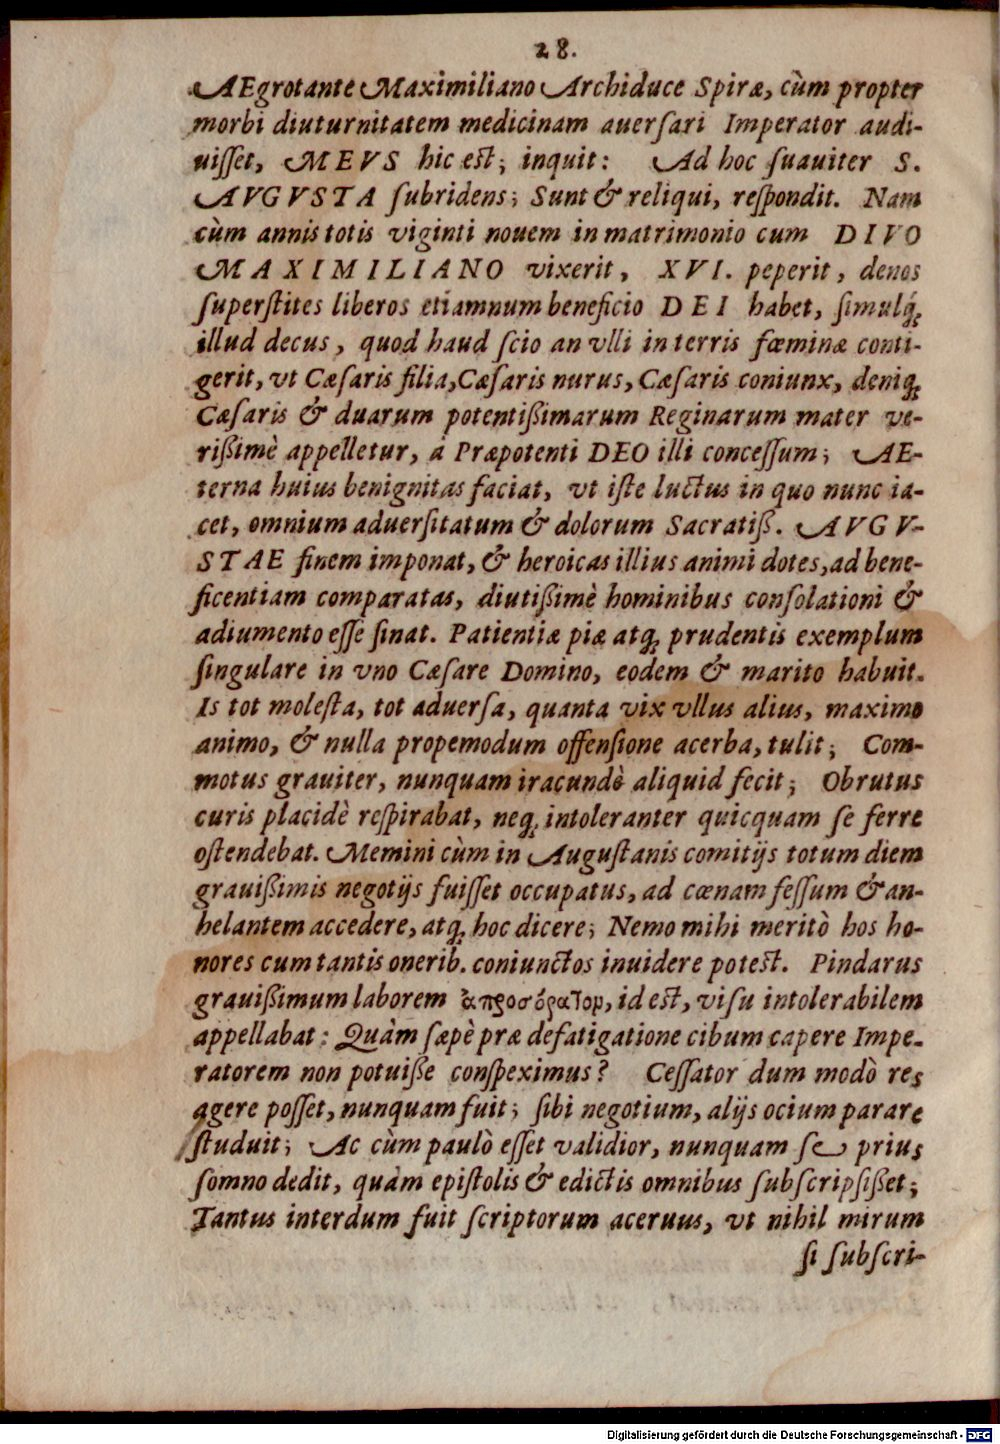 28.
AEgrotante Maximiliano Archiduce Spiræ, cùm propter
morbi diuturnitatem medicinam auersari Imperator audi-
uisset, MEVS hic est; inquit: Ad hoc suauiter S.
AVGVSTA subridens; Sunt & reliqui, respondit. Nam
cùm annis totis viginti nouem in matrimonio cum DIVO
MAXIMILIANO vixerit, XVI. peperit, denos
superstites liberos etiamnum beneficio DEI habet, simulq́;
illud decus, quod haud scio an vlli in terris fœminæ conti-
gerit, vt Cæsaris filia, Cæsaris nurus, Cæsaris coniunx, deniq;
Cæsaris & duarum potentißimarum Reginarum mater ve-
rißimè appelletur, à Præpotenti DEO illi concessum; AE-
terna huius benignitas faciat, vt iste luctus in quo nunc ia-
cet, omnium aduersitatum & dolorum Sacratiß. AVGV-
STAE finem imponat, & heroicas illius animi dotes, ad bene-
ficentiam comparatas, diutißimè hominibus consolationi &
adiumento esse sinat. Patientiæ piæ atq; prudentis exemplum
singulare in vno Cæsare Domino, eodem & marito habuit.
Is tot molesta, tot aduersa, quanta vix vllus alius, maximo
animo, & nulla propemodum offensione acerba, tulit; Com-
motus grauiter, nunquam iracundè aliquid fecit; Obrutus
curis placidè respirabat, neq; intoleranter quicquam se ferre
ostendebat. Memini cùm in Augustanis comitijs totum diem
grauißimis negotijs fuisset occupatus, ad cœnam fessum & an-
helantem accedere, atq; hoc dicere; Nemo mihi meritò hos ho-
nores cum tantis onerib. coniunctos inuidere potest. Pindarus
grauißimum laborem ἀπροσόρατον, id est, visu intolerabilem
appellabat: Quàm sæpè præ defatigatione cibum capere Impe-
ratorem non potuiße conspeximus? Cessator dum modò res
agere posset, nunquam fuit; sibi negotium, alijs ocium parare
studuit; Ac cùm paulò esset validior, nunquam se prius
somno dedit, quàm epistolis & edictis omnibus subscripsißet;
Tantus interdum fuit scriptorum aceruus, vt nihil mirum
si subscri-
Digitalisierung gefördert durch die Deutsche Forschungsgemeinschaft - DFG